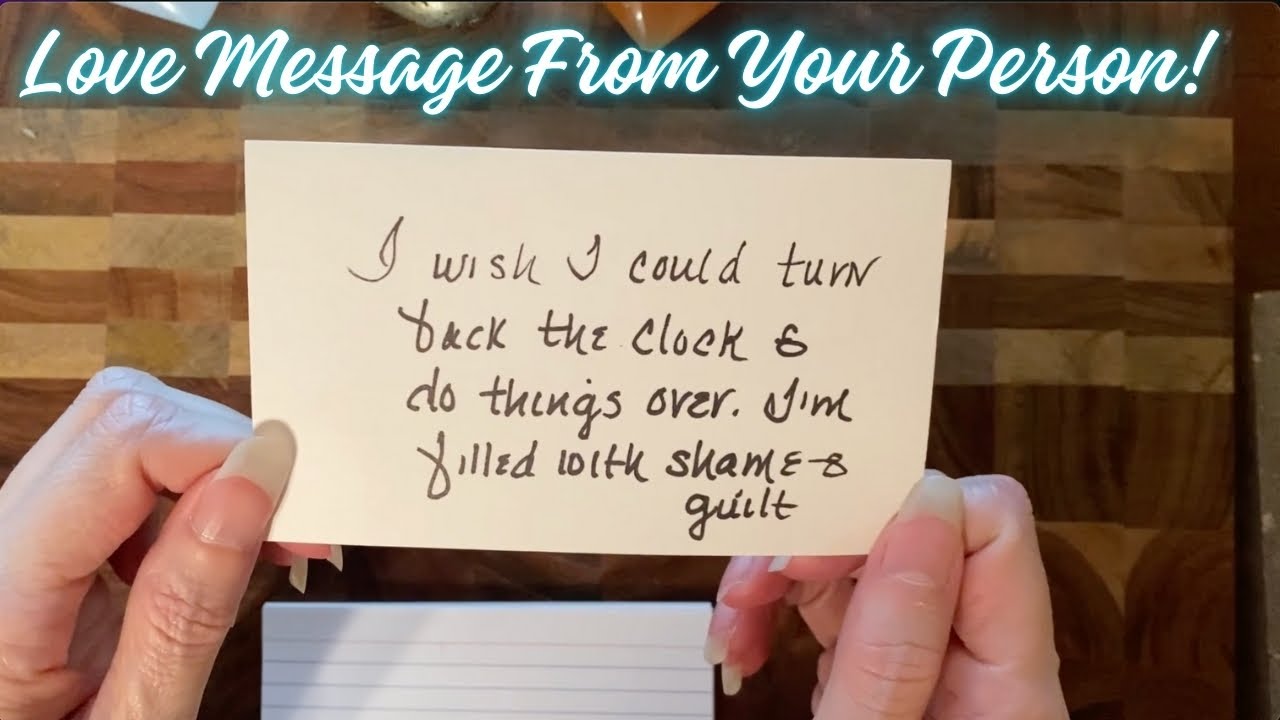 Love Message From Your Person!
I wish I could turn
back the clock &
do things over. I'm
filled with shame &
guilt